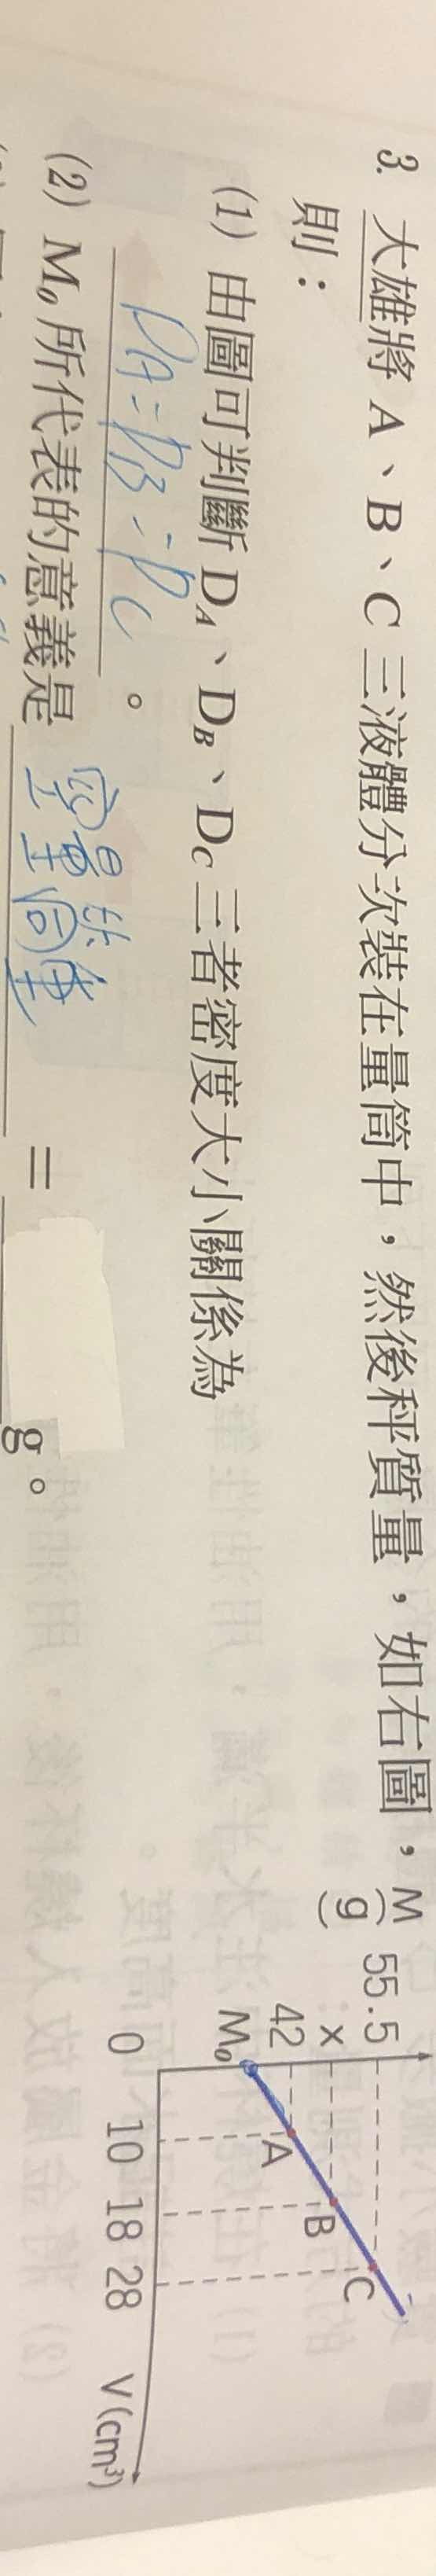 3. 大雄將 A、B、C 三液體分次裝在量筒中，然後秤質量，如右圖，
則：
(1) 由圖可判斷 D_A、D_B、D_C 三者密度大小關係為
DA=DB=DC。
(2) M₀所代表的意義是空量筒質量＝ g。
M
(g)
55.5
x
42
M₀
A
B
C
0 10 18 28 V(cm³)